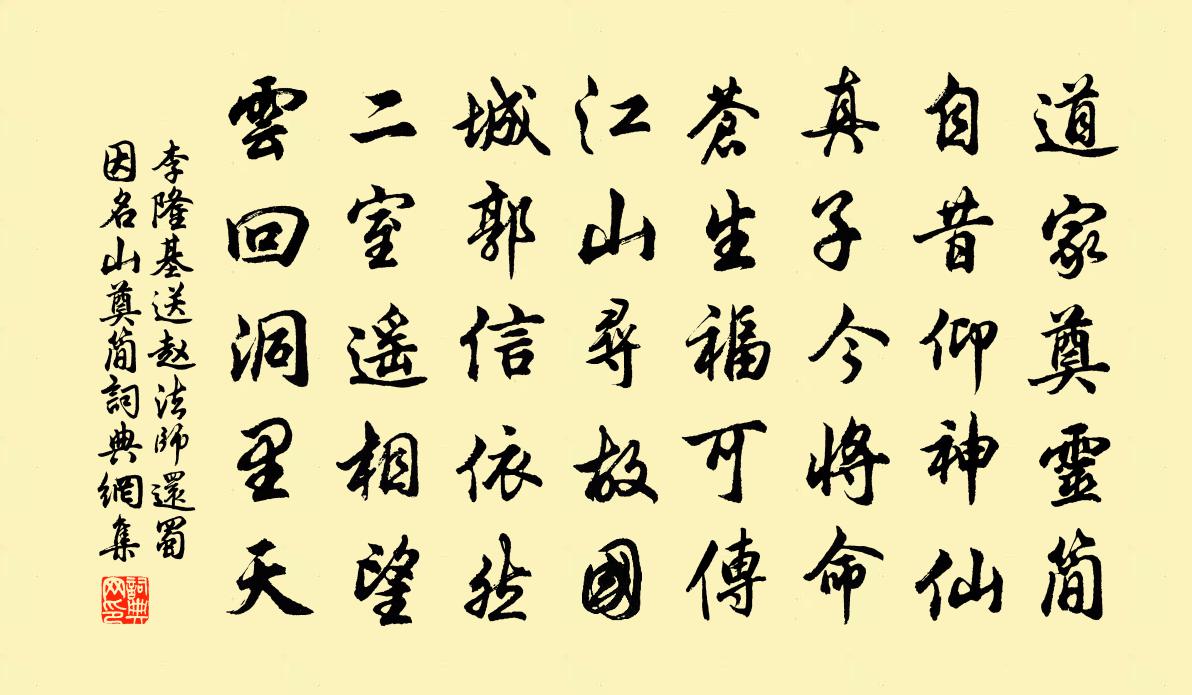 道家奠靈简
自昔仰神仙
真子今將命
蒼生福可傳
江山尋故國
城郭信依然
二室遥相望
雲回洞里天
李隆基送赵法師還蜀
因名山奠简詞典網集
詞典网印